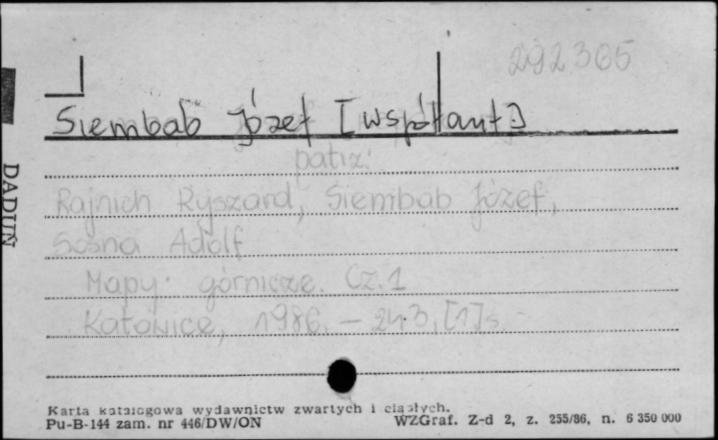 292365
Siembab Józef [współaut.]
patrz:
Rajnich Ryszard, Siembab Józef,
Sosna Adolf
Mapy górnicze. Cz. 1
Katowice, 1986. – 243, [1] s.
DADUŃ
Karta katalogowa wydawnictw zwartych i ciągłych.
Pu-B-144 zam. nr 446/DW/ON WZGraf. Z-d 2, z. 255/86, n. 6 350 000